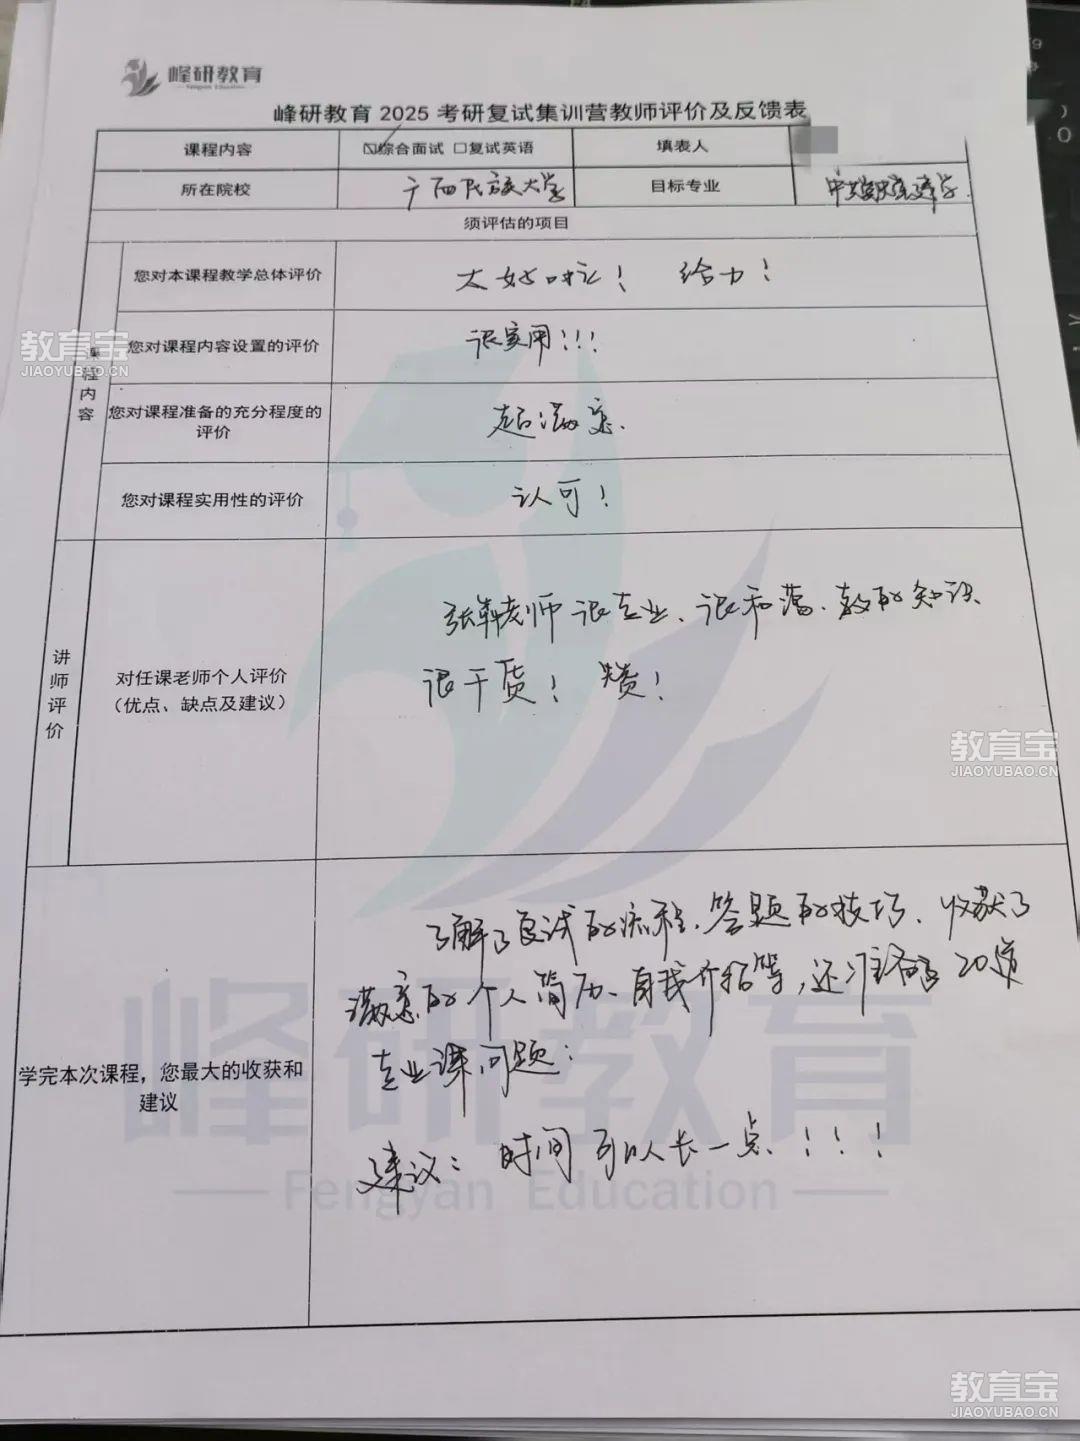 峰研教育
Fengyan Education
峰研教育 2025 考研复试集训营教师评价及反馈表
课程内容 ☑综合面试 □复试英语 填表人
所在院校 广西民族大学 目标专业
须评估的项目
课程内容
您对本课程教学总体评价 太好啦！ 给力！
您对课程内容设置的评价 很实用！！！
您对课程准备的充分程度的
评价
超满意.
您对课程实用性的评价 认可！
讲师评价
对任课老师个人评价
（优点、缺点及建议）
老师很专业、很和蔼、教的知识
很干货！ 赞！
学完本次课程，您最大的收获和
建议
了解了复试的流程、答题的技巧、收获了
满意的个人简历、自我介绍等，还准备了20道
专业课问题；
建议：时间可以长一点！！！
峰研教育
Fengyan Education
教育宝
JIAOYUBAO.CN
教育宝
JIAOYUBAO.CN
教育宝
JIAOYUBAO.CN